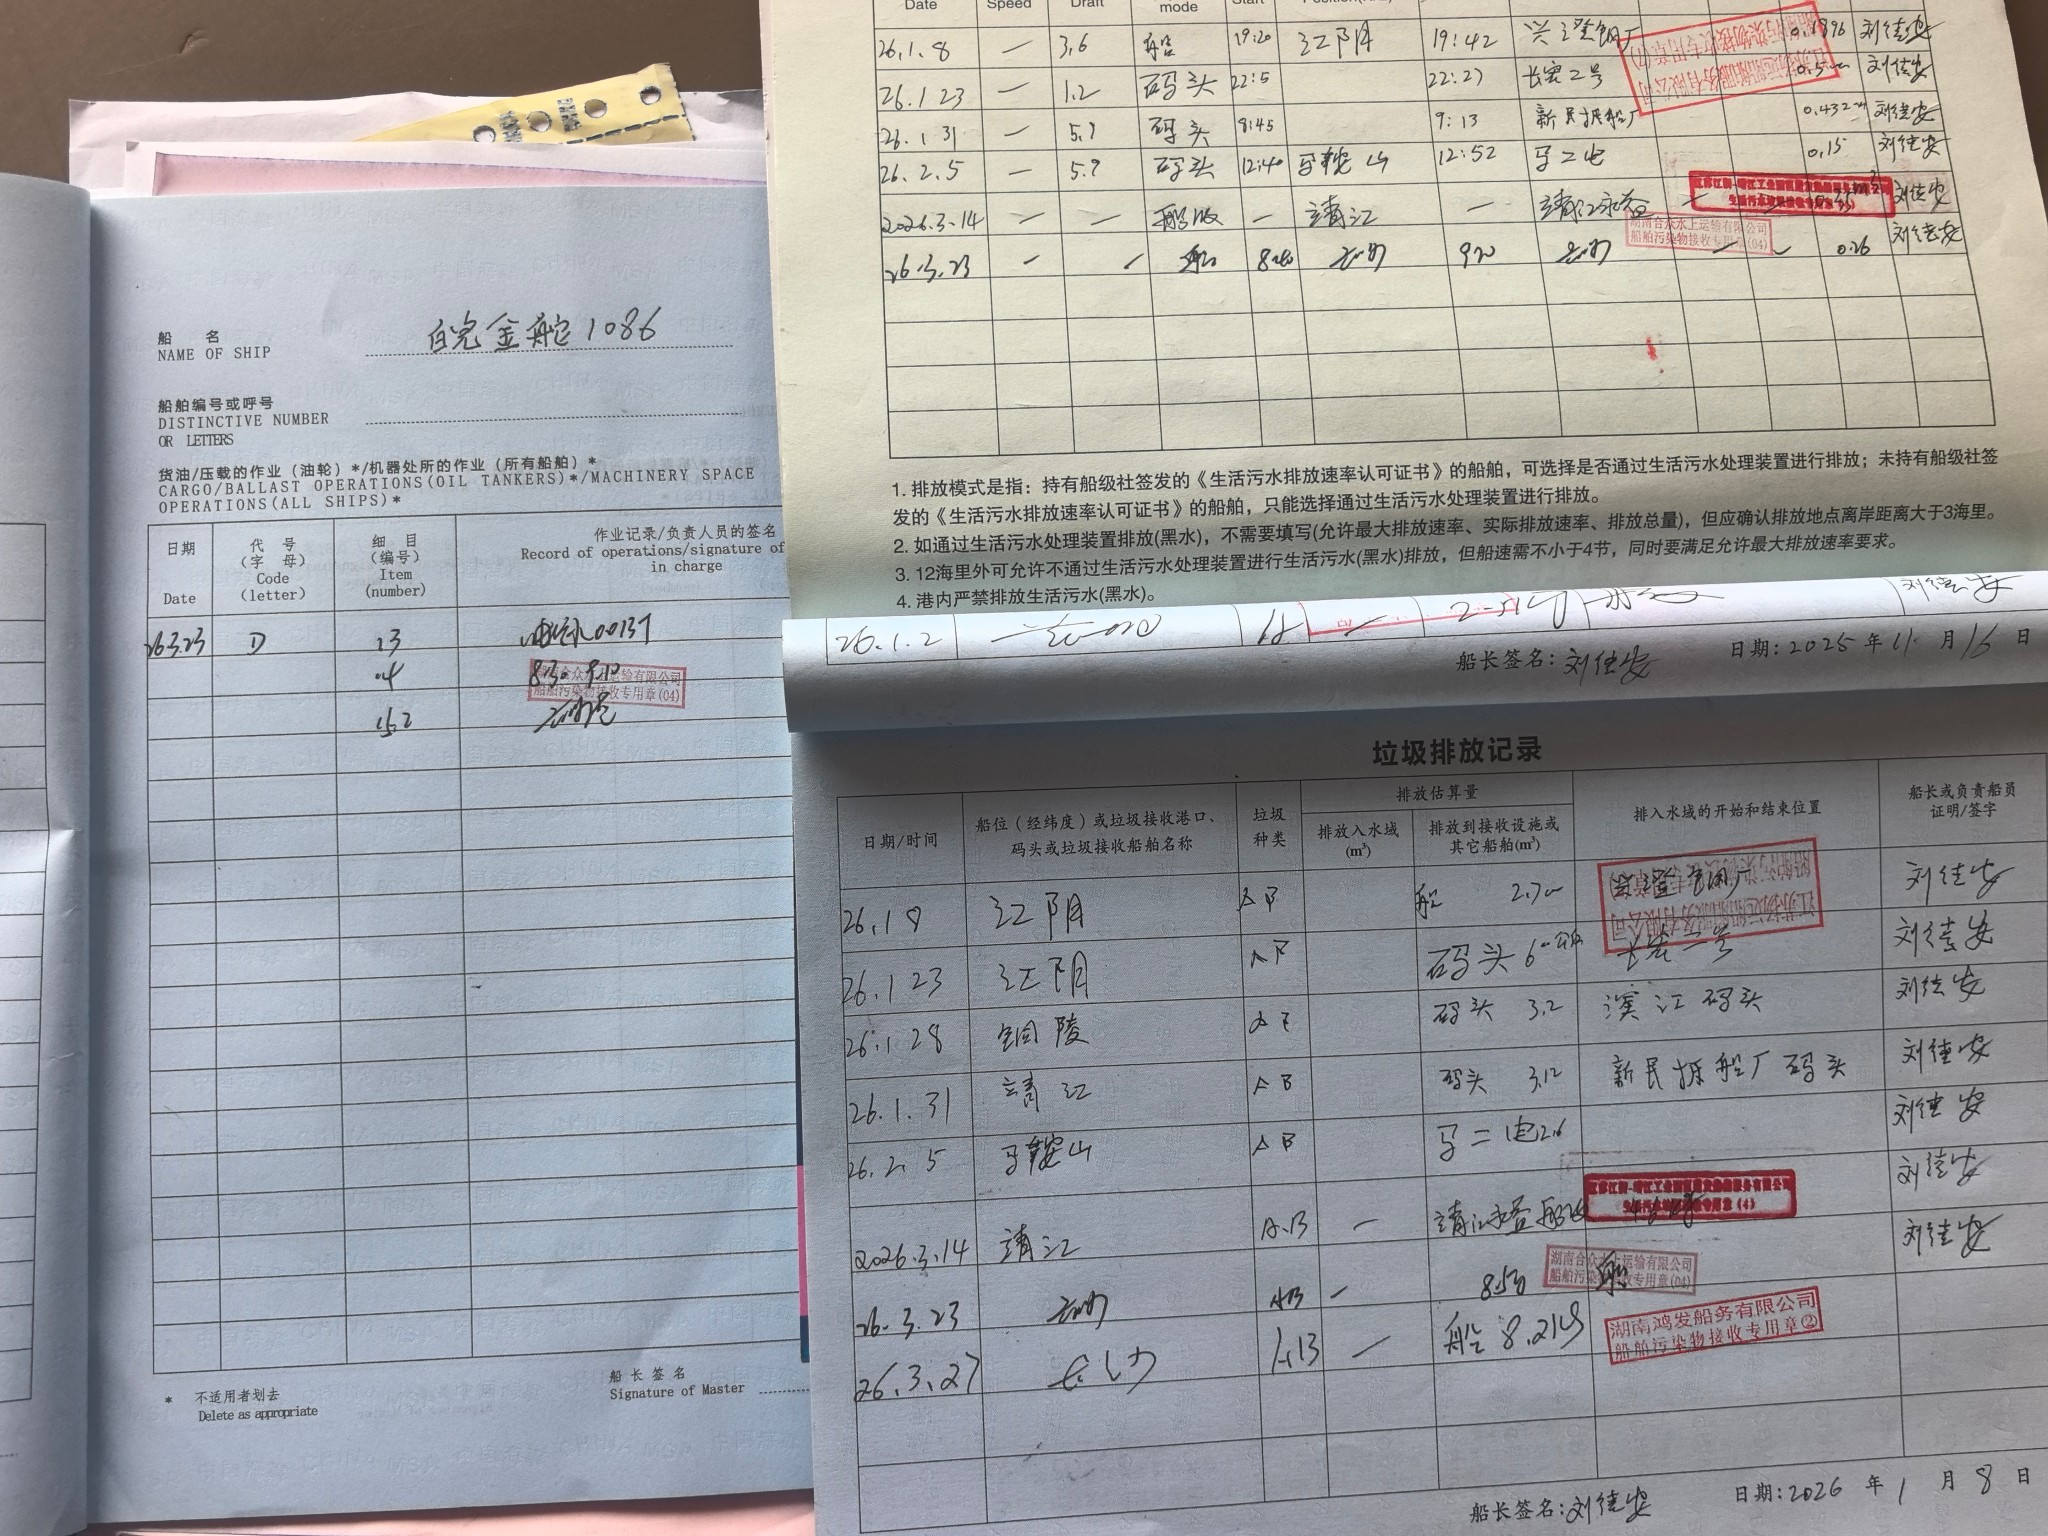 船 名
NAME OF SHIP
金舵1086
船舶编号或呼号
DISTINCTIVE NUMBER
OR LETTERS
货油/压载的作业（油轮）*/机器处所的作业（所有船舶）*
CARGO/BALLAST OPERATIONS(OIL TANKERS)*/MACHINERY SPACE
OPERATIONS(ALL SHIPS)*
日期 Date 代号（字母） Code (letter) 细目（编号） Item (number) 作业记录/负责人员的签名
Record of operations/signature of
in charge
26.3.23 D
* 不适用者划去
Delete as appropriate
船长签名
Signature of Master
Date Speed Draft mode Start
26.1.8 — 3.6 船 19:20 江阴 19:42 兴澄钢厂 刘佳安
26.1 23 — 1.2 码头 22:5 22:27 长宏二号 刘佳安
26.1 31 — 5.9 码头 8:45 9:13 新民拆船厂 0.432 刘佳安
26.2.5 — 5.9 码头 12:40 马鞍山 12:52 马二电 0.15 刘佳安
2026.3.14 — — 船收 — 靖江 — 靖江永益 刘佳安
湖南合众水上运输有限公司
船舶污染物接收专用章(04)
26.3.23 — — 船 0.26 刘佳安
1. 排放模式是指：持有船级社签发的《生活污水排放速率认可证书》的船舶，可选择是否通过生活污水处理装置进行排放；未持有船级社签
发的《生活污水排放速率认可证书》的船舶，只能选择通过生活污水处理装置进行排放。
2. 如通过生活污水处理装置排放(黑水)，不需要填写(允许最大排放速率、实际排放速率、排放总量)，但应确认排放地点离岸距离大于3海里。
3. 12海里外可允许不通过生活污水处理装置进行生活污水(黑水)排放，但船速需不小于4节，同时要满足允许最大排放速率要求。
4. 港内严禁排放生活污水(黑水)。
26.1.2 刘佳安
船长签名：刘佳安 日期：2025 年 11 月 16 日
垃圾排放记录
日期/时间 船位（经纬度）或垃圾接收港口、码头或垃圾接收船舶名称 垃圾种类 排放估算量 排放入水域(m³) 排放到接收设施或其它船舶(m³) 排入水域的开始和结束位置 船长或负责船员证明/签字
26.1 8 江阴 A B 船 刘佳安
26.1 23 江阴 码头 长宏二号 刘佳安
26.1 28 铜陵 码头 3.2 滨江码头 刘佳安
26.1.31 靖江 A B 码头 3.12 新民拆船厂码头 刘佳安
26.2.5 马鞍山 A B 马二电 2.6 刘佳安
2026.3.14 靖江 A.B — 靖江永益 刘佳安
湖南合众水上运输有限公司
船舶污染物接收专用章(04)
26.3.23 AB — 船 刘佳安
26.3.27 长沙 A.B — 船
湖南鸿发船务有限公司
船舶污染物接收专用章②
船长签名：刘佳安 日期：2026 年 1 月 8 日